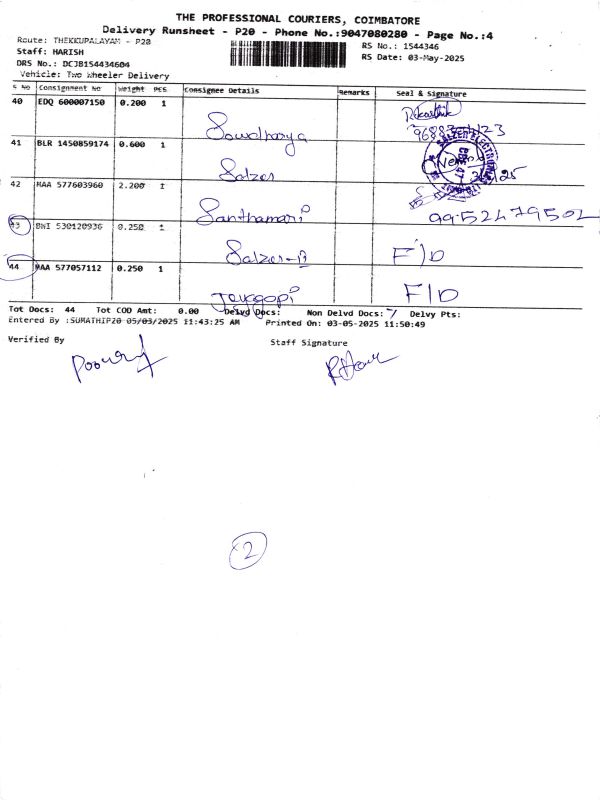 THE PROFESSIONAL COURIERS, COIMBATORE
Delivery Runsheet - P20 - Phone No.:9047080280 - Page No.:4
Route: THEKKUPALAYAM - P20
RS No.: 1544346
Staff: HARISH
RS Date: 03-May-2025
DRS No.: DCJB154434604
Vehicle: Two Wheeler Delivery
S No Consignment No Weight PCS Consignee Details Remarks Seal & Signature
40 EDQ 600007150 0.200 1
Sowdharya
41 BLR 1450859174 0.600 1
Salzer
42 MAA 577603960 2.200 1
Santhamari 9952479502
43 BWI 530120936 0.250 1
Salzer-II F/D
44 MAA 577057112 0.250 1
Jeyagopi F/D
Tot Docs: 44 Tot COD Amt: 0.00 Delvd Docs: Non Delvd Docs: 7 Delvy Pts:
Entered By :SUMATHIP20 05/03/2025 11:43:25 AM Printed On: 03-05-2025 11:50:49
Verified By
Staff Signature
2